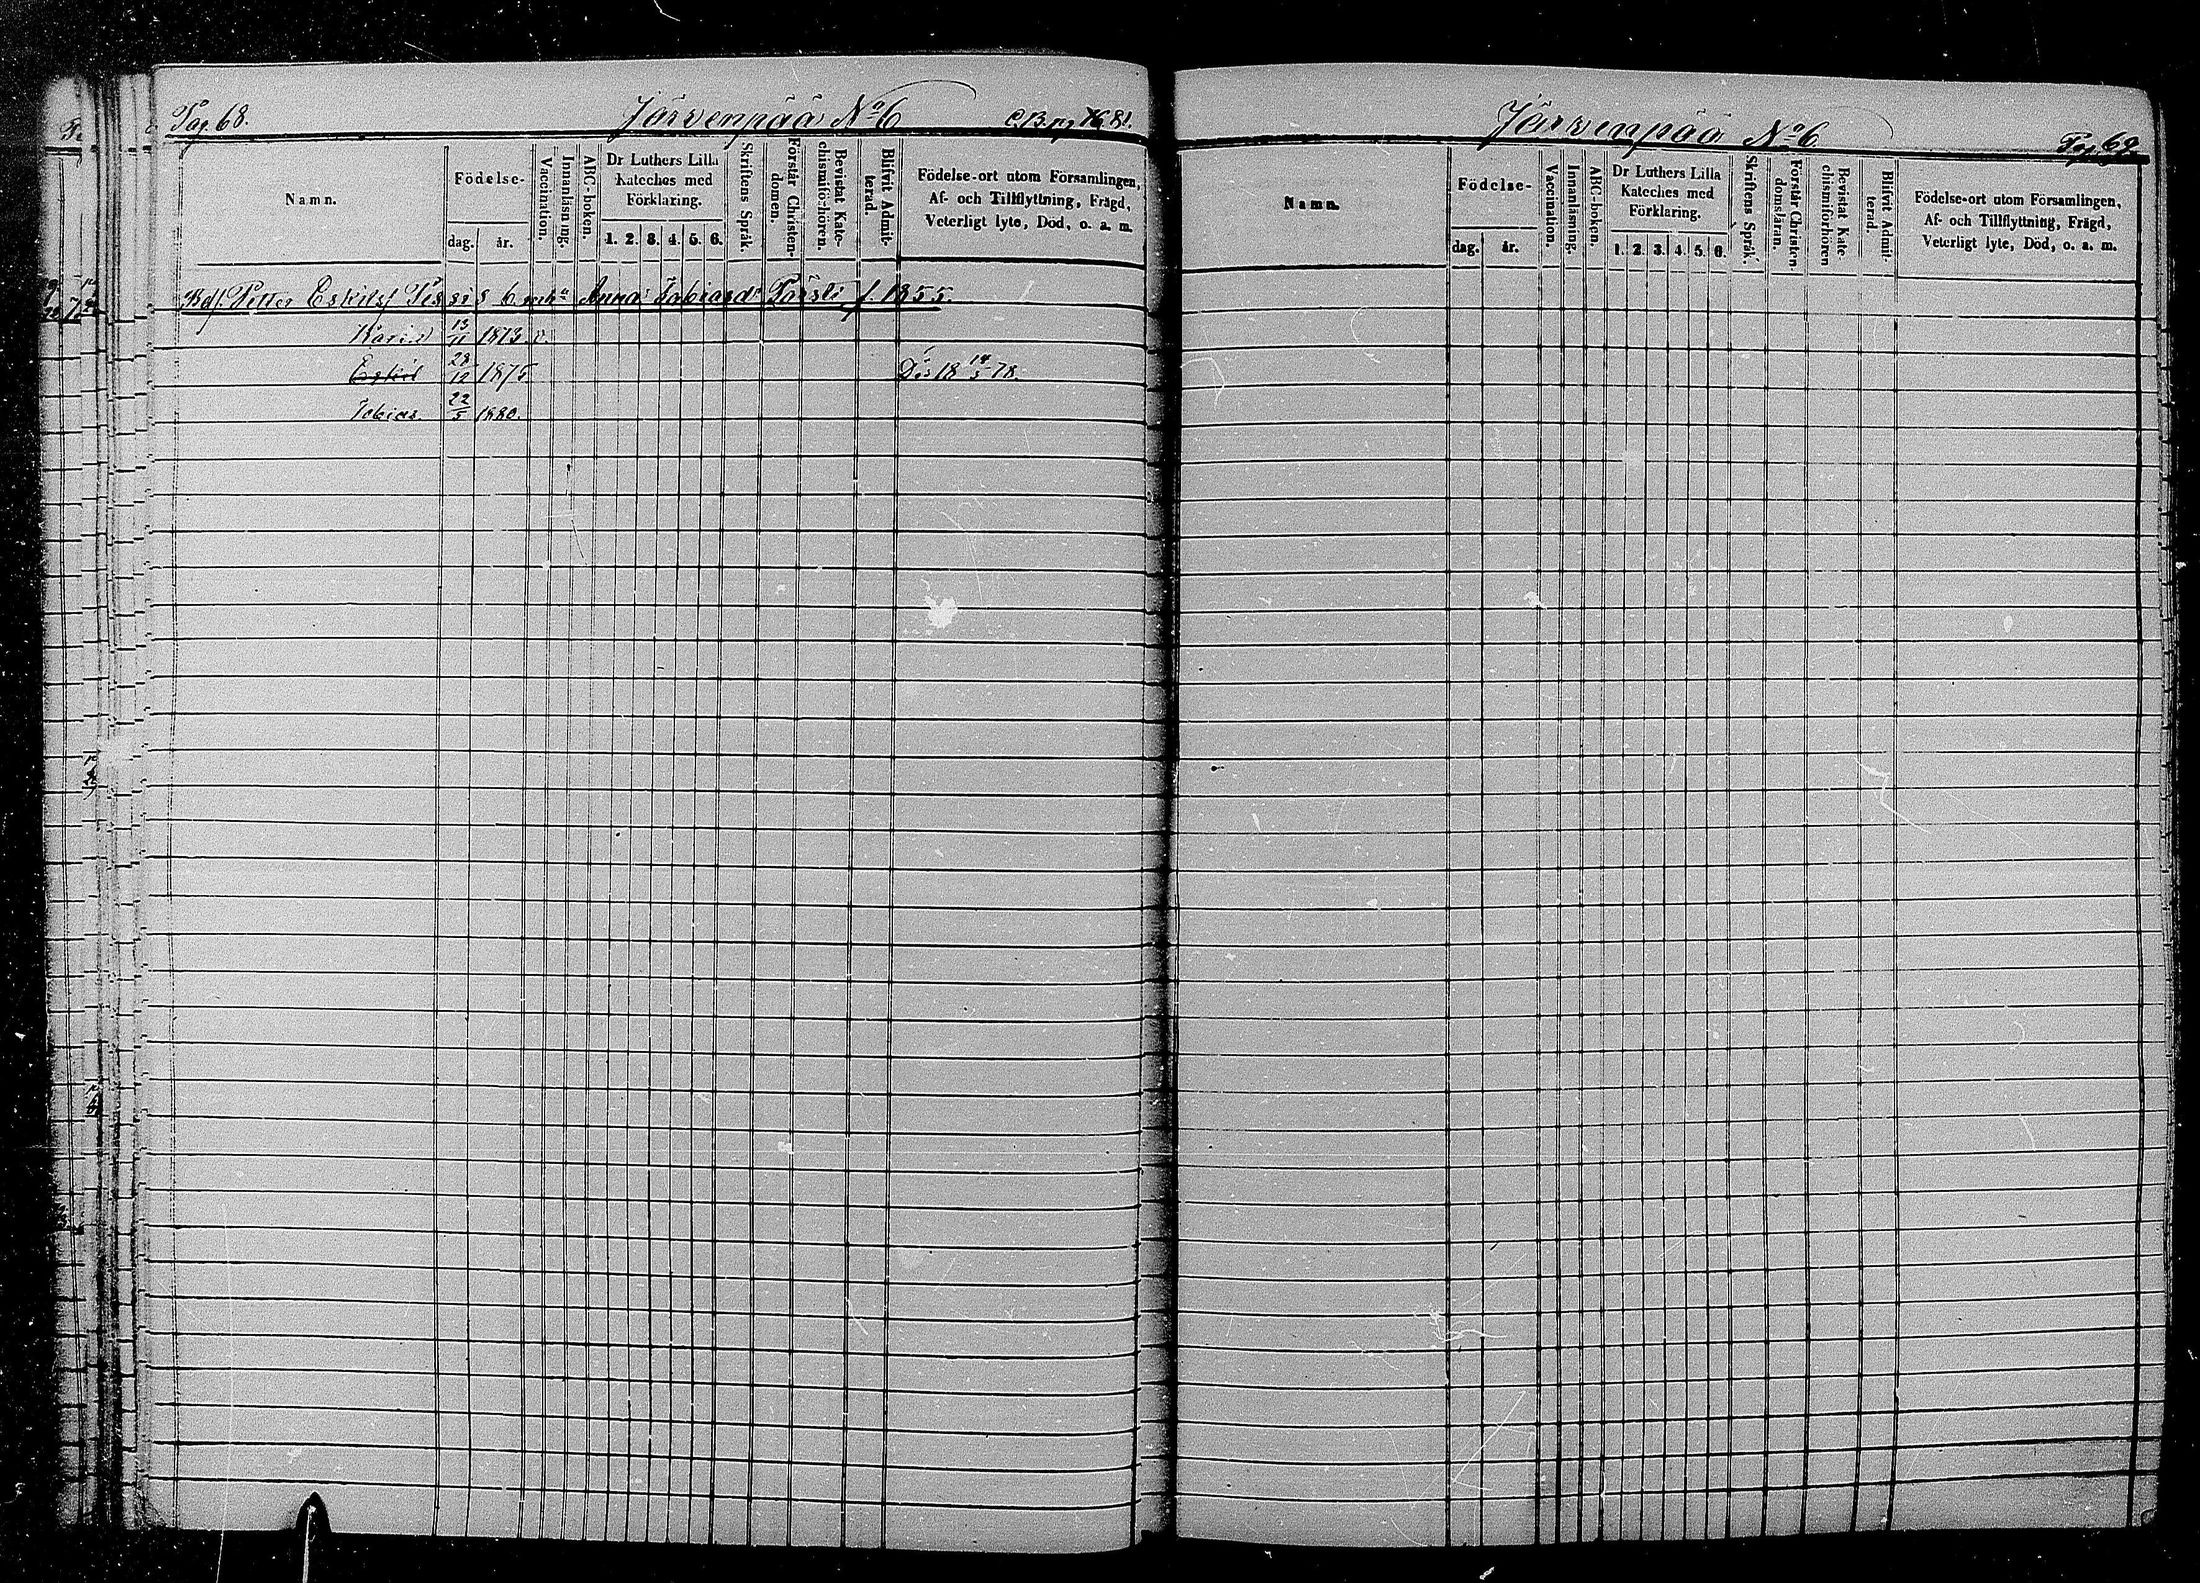 Pag. 68. Järvenpää No 6 C.B. pag 81.
Namn. Födelse- dag. år. Vaccination. Innanläsning. ABC-boken. Dr Luthers Lilla Kateches med Förklaring. 1. 2. 3. 4. 5. 6. Skriftens Språk. Förstår Christendomen. Bevistat Katechismiförhören. Blifvit Admitterad. Födelse-ort utom Församlingen, Af- och Tillflyttning, Frägd, Veterligt lyte, Död, o. a. m.
Petter Eskilsf Anna Fabiansd f. 1855.
Karin 13/11 1873 v.
Eskil 28/12 1875 Död 18 14/5 78.
Tobias 22/5 1880.
Järvenpää No 6 Pag. 69.
Namn. Födelse- dag. år. Vaccination. Innanläsning. ABC-boken. Dr Luthers Lilla Kateches med Förklaring. 1. 2. 3. 4. 5. 6. Skriftens Språk. Förstår Christendomsläran. Bevistat Katechismiförhören Blifvit Admitterad. Födelse-ort utom Församlingen, Af- och Tillflyttning, Frägd, Veterligt lyte, Död, o. a. m.